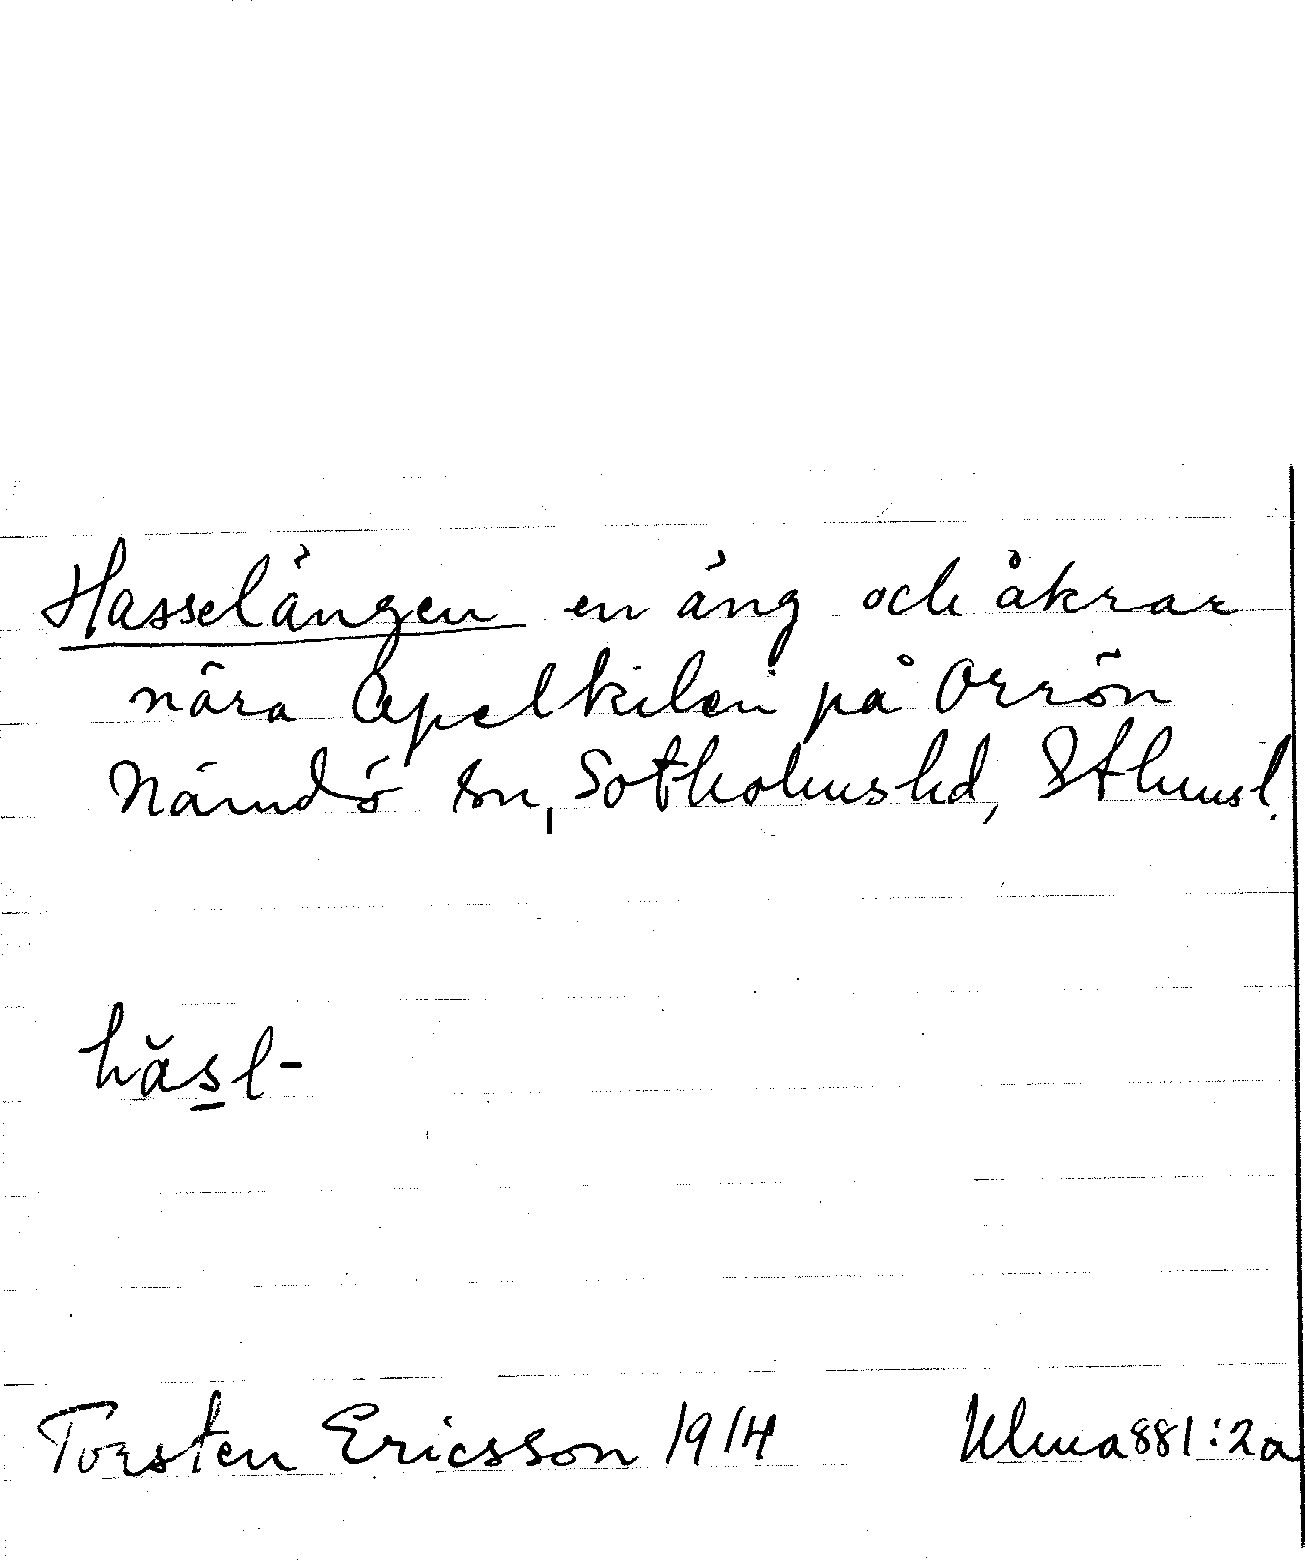 Hasselängen en äng och åkrar
nära Apelkilen på Orrön
Nämdö sn, Sotholms hd, Sthmsl.
hăsl-
Torsten Ericsson 1914 Ulma 881:2a